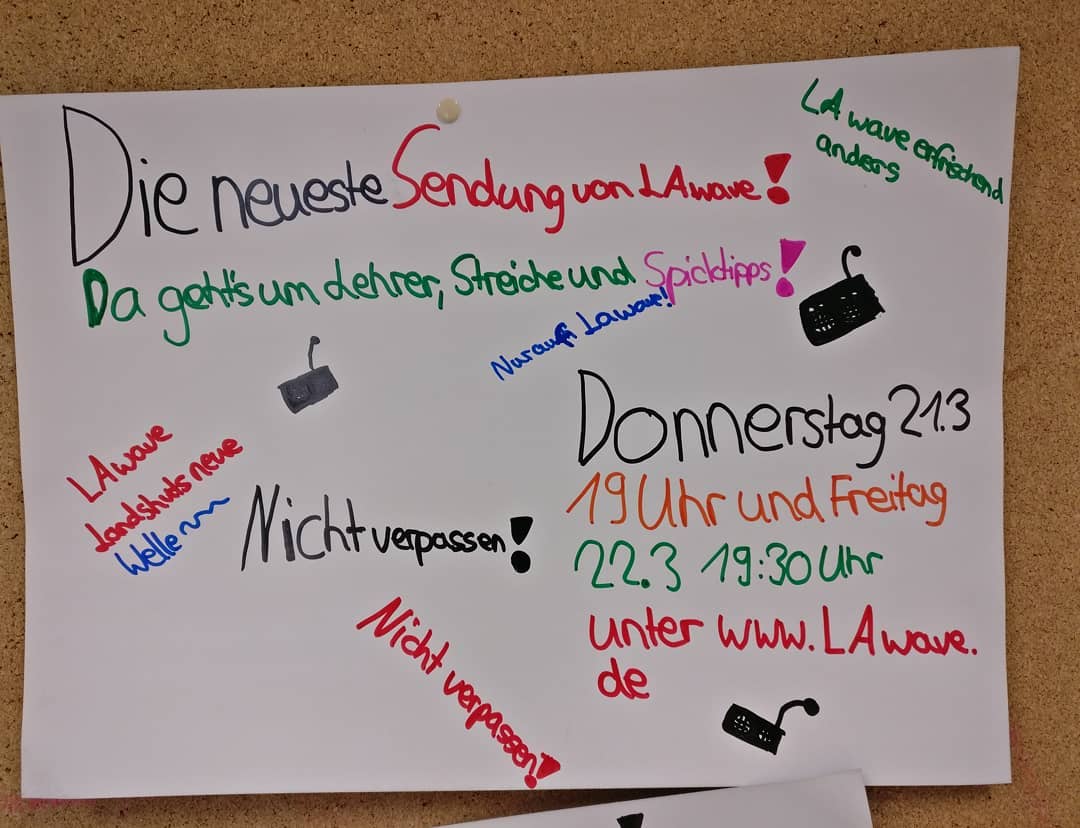 LA wave erfrischend
anders
Die neueste Sendung von LAwave!
Da geht's um Lehrer, Streiche und Spicktipps!
Nur auf LAwave!
Donnerstag 21.3
19 Uhr und Freitag
22.3 19:30 Uhr
unter www.LAwave.
de
LAwave
Landshuts neue
Welle
Nicht verpassen!
Nicht verpassen!